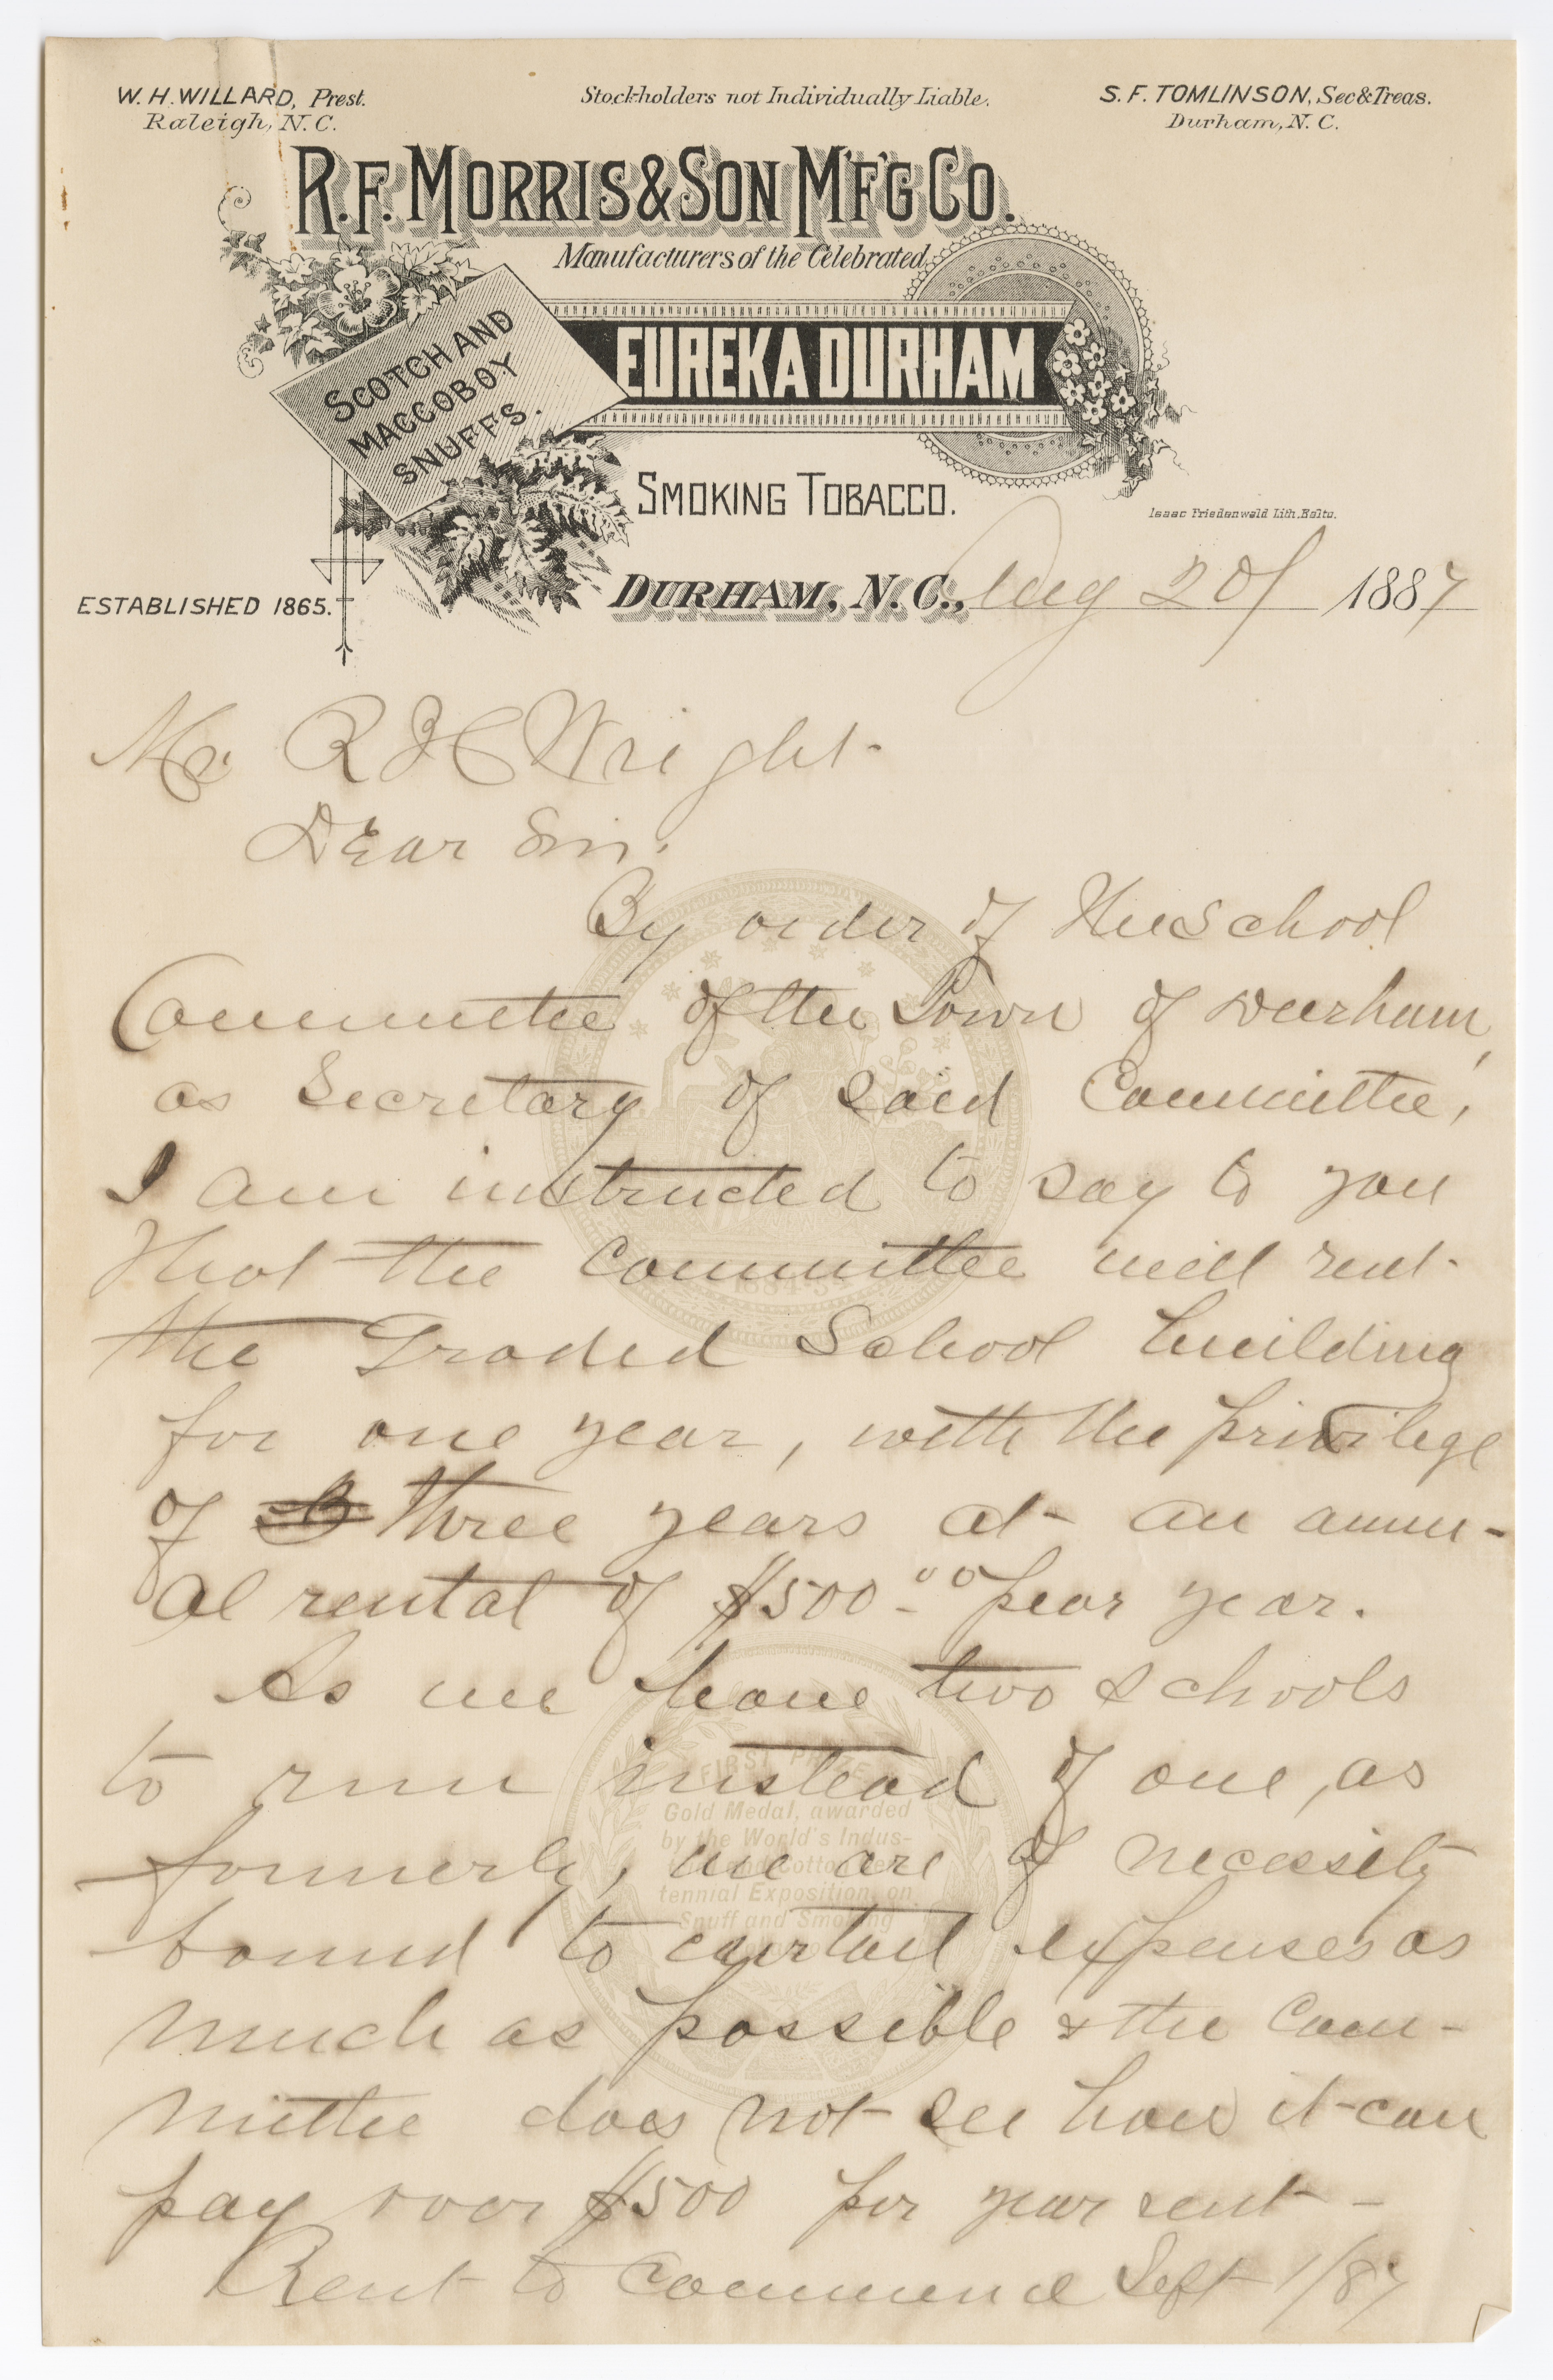 W. H. WILLARD, Prest.
Raleigh, N. C.
Stockholders not Individually Liable.
S. F. TOMLINSON, Sec & Treas.
Durham, N. C.
R. F. MORRIS & SON M'F'G CO.
Manufacturers of the Celebrated
SCOTCH AND
MACCOBOY
SNUFFS.
EUREKA DURHAM
SMOKING TOBACCO.
Isaac Friedenwald Lith. Balto.
ESTABLISHED 1865.
DURHAM, N. C., Aug 20/ 1887
Mr R J C Wright.
Dear Sir,
By order of the School
Committee of the Town of Durham,
as Secretary of said Committee,
I am instructed to say to you
that the Committee will rent
the Graded School building
for one year, with the privilege
of three years at an annu-
al rental of $500.00 pear year.
As we have two schools
to run instead of one, as
formerly, we are of necessity
bound to curtail expenses as
much as possible & the Com-
mittee does not see how it can
pay over $500 per year rent -
Rent to commence Sept 1/87
1884-5
FIRST PRIZE
Gold Medal, awarded
by the World's Indus-
and Cotton
tennial Exposition, on
Snuff and Smoking